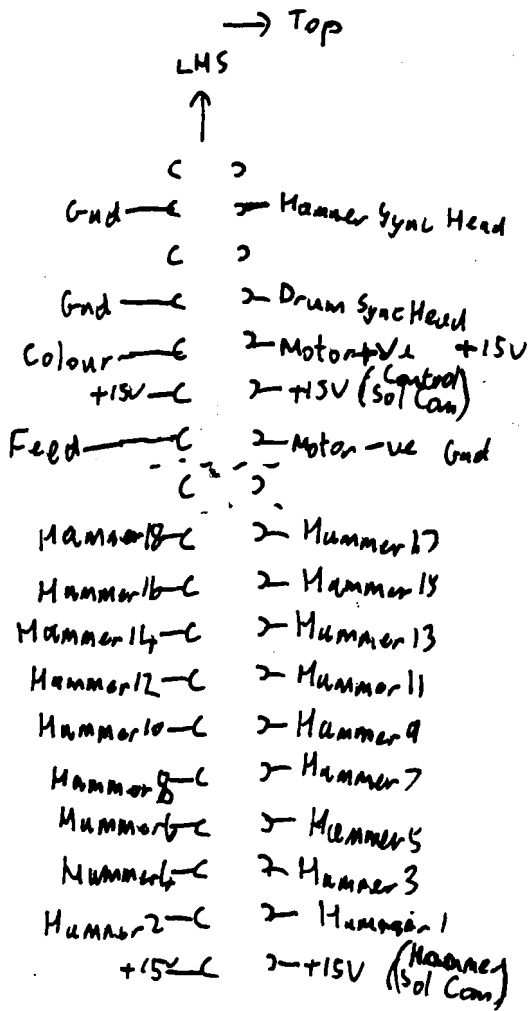 → Top
LHS
↑
Gnd Hammer Sync Head
Gnd Drum Sync Head
Colour Motor +ve +15V
+15V +15V (Control Sol Com)
Feed Motor -ve Gnd
Hammer 18 Hammer 17
Hammer 16 Hammer 15
Hammer 14 Hammer 13
Hammer 12 Hammer 11
Hammer 10 Hammer 9
Hammer 8 Hammer 7
Hammer 6 Hammer 5
Hammer 4 Hammer 3
Hammer 2 Hammer 1
+15V +15V (Hammer Sol Com)